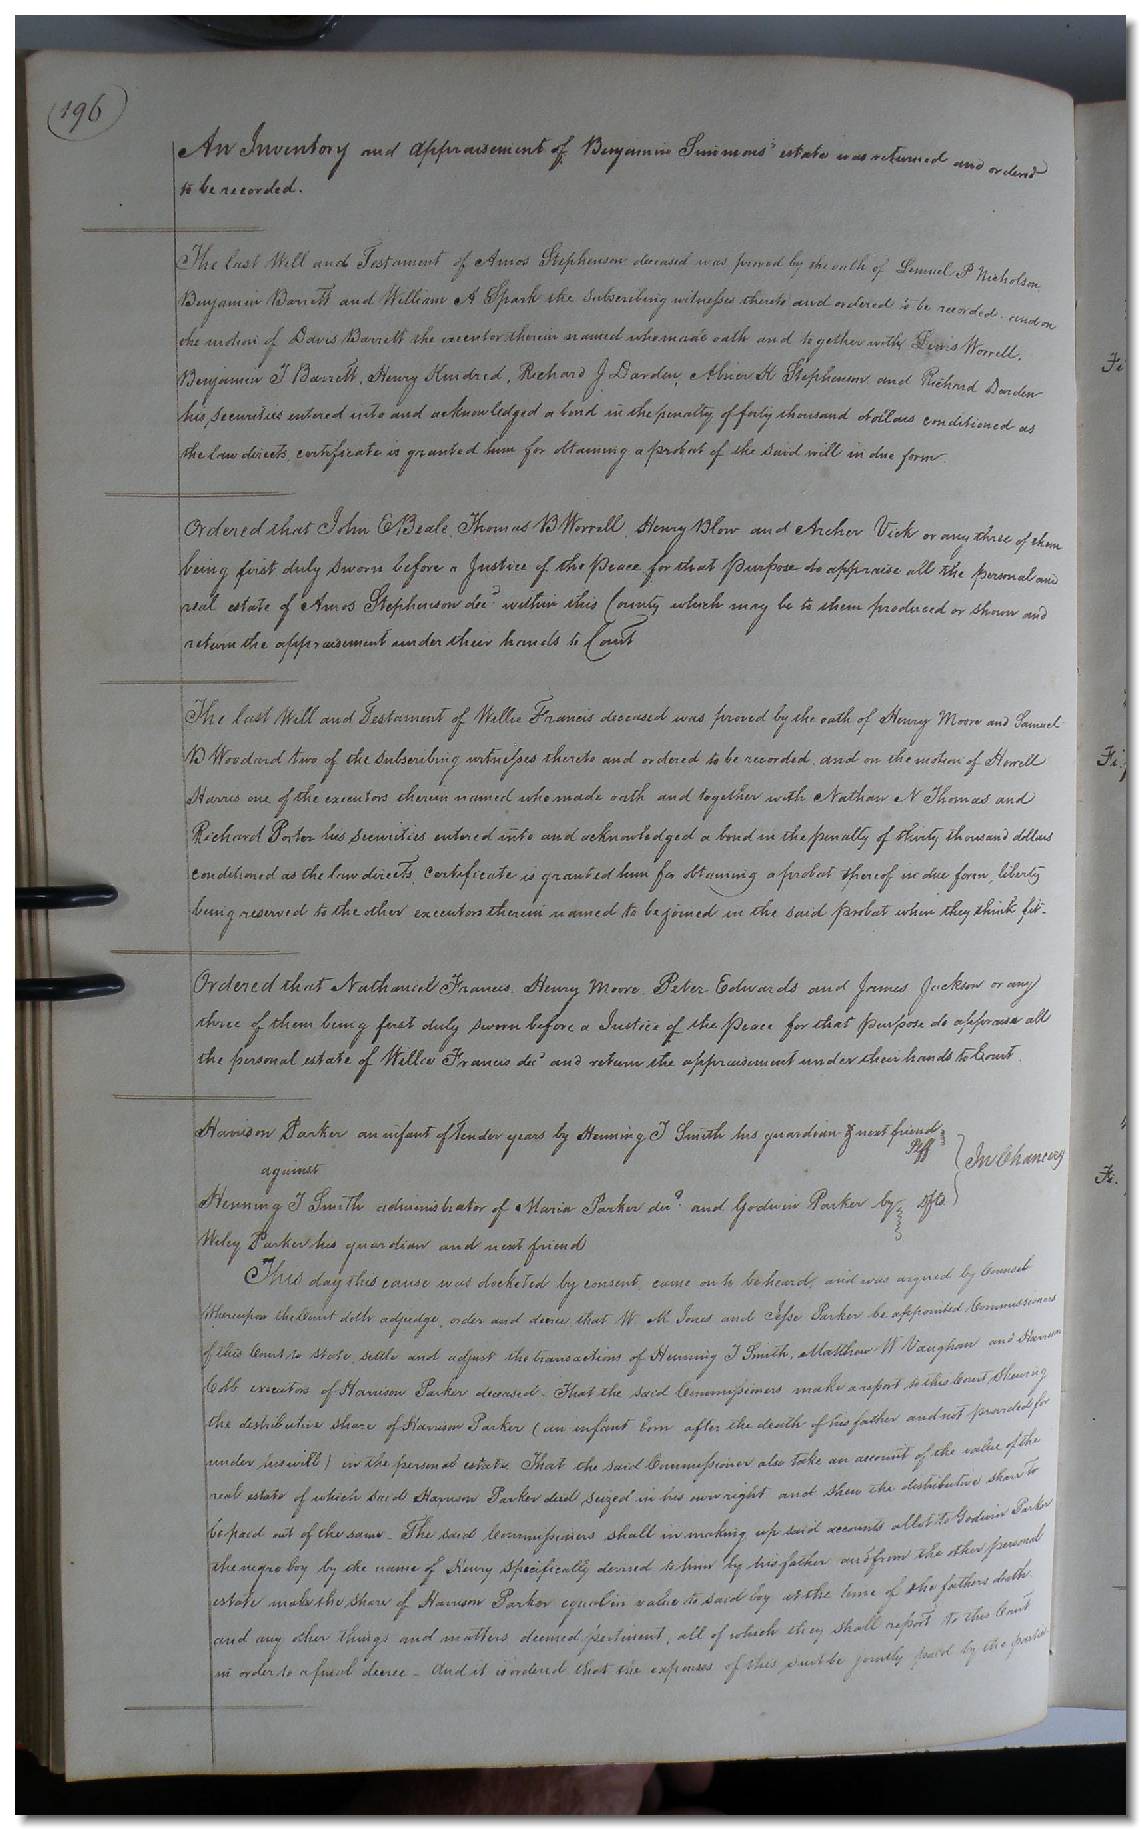 196
An Inventory and appraisement of Benjamin Simmons' estate was returned and ordered
to be recorded.
The last Will and Testament of Amos Stephenson deceased was proved by the oath of Lemuel P Nicholson
Benjamin Barrett and William A Spark the subscribing witnesses thereto and ordered to be recorded. and on
the motion of Davis Barrett the executor therein named who made oath and together with Lewis Worrell,
Benjamin T Barrett, Henry Kindred, Richard J. Darden, Abner H Stephenson and Richard Darden
his securities entered into and acknowledged a bond in the penalty of forty thousand dollars conditioned as
the law directs, certificate is granted him for obtaining a probat of the said will in due form.
Ordered that John E Beale, Thomas B Worrell, Henry Blow and Archer Vick or any three of them
being first duly sworn before a Justice of the Peace for that purpose do appraise all the personal and
real estate of Amos Stephenson decd within this County which may be to them produced or shown and
return the appraisement under their hands to Court
The last Will and Testament of Willie Francis deceased was proved by the oath of Henry Moore and Samuel
B Woodard two of the subscribing witnesses thereto and ordered to be recorded, and on the motion of Howell
Harris one of the executors therein named who made oath and together with Nathan N Thomas and
Richard Porter his securities entered into and acknowledged a bond in the penalty of thirty thousand dollars
conditioned as the law directs, certificate is granted him for obtaining a probat thereof in due form, liberty
being reserved to the other executors therein named to be joined in the said probat when they think fit.
Ordered that Nathaniel Francis, Henry Moore, Peter Edwards and James Jackson or any
three of them being first duly sworn before a Justice of the Peace for that purpose do appraise all
the personal estate of Willie Francis decd and return the appraisement under their hands to Court.
Harrison Parker an infant of tender years by Henning T Smith his guardian & next friend
Plff
In Chancery
against
Henning T Smith administrator of Maria Parker decd and Godwin Parker by
Dfts
Wiley Parker his guardian and next friend
This day this cause was docketed by consent, came on to be heard, and was argued by Counsel
Whereupon the Court doth adjudge, order and decree, that W. M. Jones and Jesse Parker be appointed Commissioners
of this Court to state, settle and adjust the transactions of Henning T Smith, Matthew W Vaughan and Harrison
Cobb executors of Harrison Parker deceased. That the said Commissioners make a report to this Court, shewing
the distributive share of Harrison Parker (an infant born after the death of his father and not provided for
under his will) in the personal estate. That the said Commissioner also take an account of the value of the
real estate of which said Harrison Parker died seized in his own right and shew the distributive share to
be paid out of the same. The said Commissioners shall in making up said accounts allot to Godwin Parker
the negro boy by the name of Henry specifically devised to him by his father and from the other personal
estate make the share of Harrison Parker equal in value to said boy at the time of the fathers death
and any other things and matters deemed pertinent, all of which they shall report to this Court
in order to a final decree. And it is ordered that the expenses of this suit be jointly paid by the parties